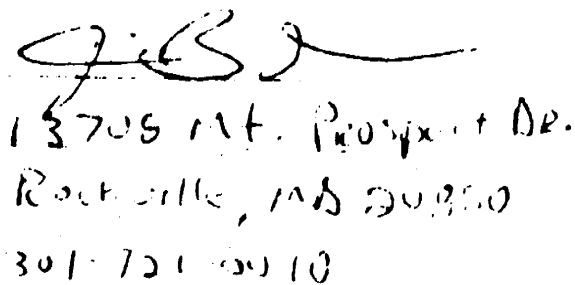 13705 Mt. Prospect Dr.
Rockville, MD 20850
301-721-0010